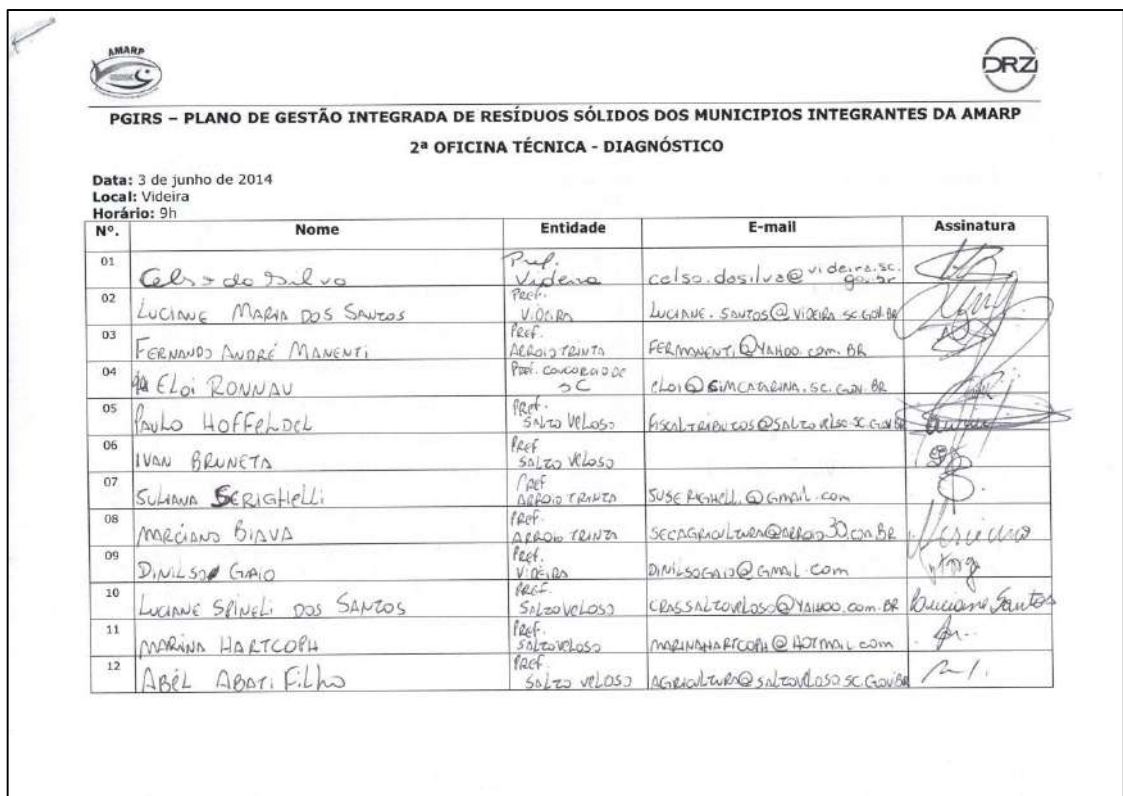 AMARP
DRZ
PGIRS – PLANO DE GESTÃO INTEGRADA DE RESÍDUOS SÓLIDOS DOS MUNICIPIOS INTEGRANTES DA AMARP
2ª OFICINA TÉCNICA - DIAGNÓSTICO
Data: 3 de junho de 2014
Local: Videira
Horário: 9h
Nº. Nome Entidade E-mail Assinatura
01 Celso da Silva Pref. Videira celso.dasilva@videira.sc.gov.br
02 LUCIANE MARIA DOS SANTOS Pref. VIDEIRA LUCIANE.SANTOS@VIDEIRA.SC.GOV.BR
03 FERNANDO ANDRÉ MANENTI Pref. ARROIO TRINTA FERMANENTI@YAHOO.COM.BR
04 ELOI RONNAU Pref. SC
05 PAULO HOFFELDEL Pref. SALTO VELOSO
06 IVAN BRUNETA Pref SALTO VELOSO
07 SULIANA SERIGHELLI Pref ARROIO TRINTA SUSERIGHELLI@GMAIL.COM
08 MARCIANO BIAVA Pref. ARROIO TRINTA SECAGRICULTURA@ARROIO30.COM.BR
09 DINILSO GAIO Pref. VIDEIRA DINILSOGAIO@GMAIL.COM
10 LUCIANE SPINELI DOS SANTOS Pref. SALTO VELOSO CRASSALTOVELOSO@YAHOO.COM.BR Luciane Santos
11 MARINA HARTCOPH Pref. SALTO VELOSO MARINAHARTCOPH@HOTMAIL.COM
12 ABEL ABATI FILHO Pref. SALTO VELOSO AGRICULTURA@SALTOVELOSO.SC.GOV.BR